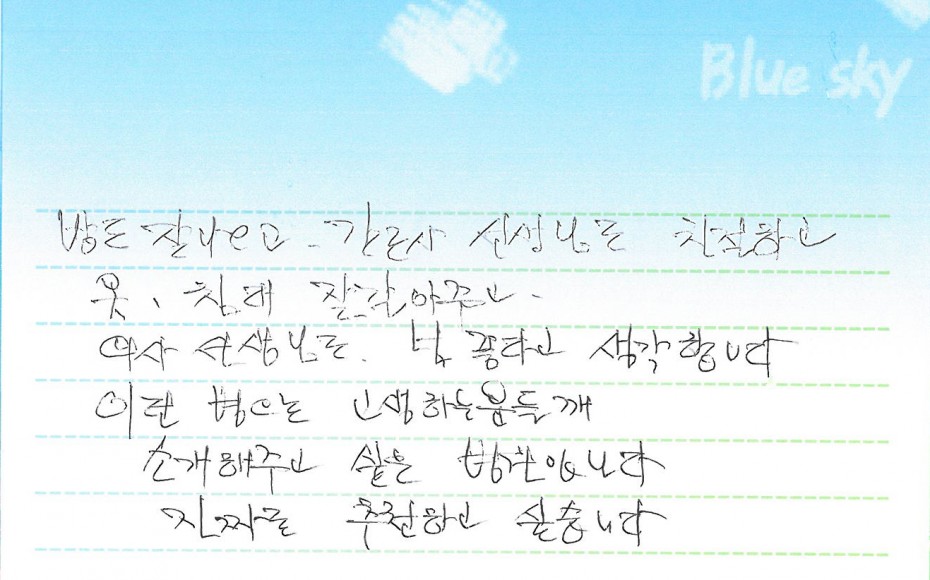 Blue sky
밥도 잘나오고 간호사 선생님도 친절하고
옷, 침대 잘갈아주고.
의사 선생님도. 넘 좋다고 생각합니다
이런 병으로 고생하는분들께
소개해주고 싶은 병원입니다
진짜로 추천하고 싶습니다